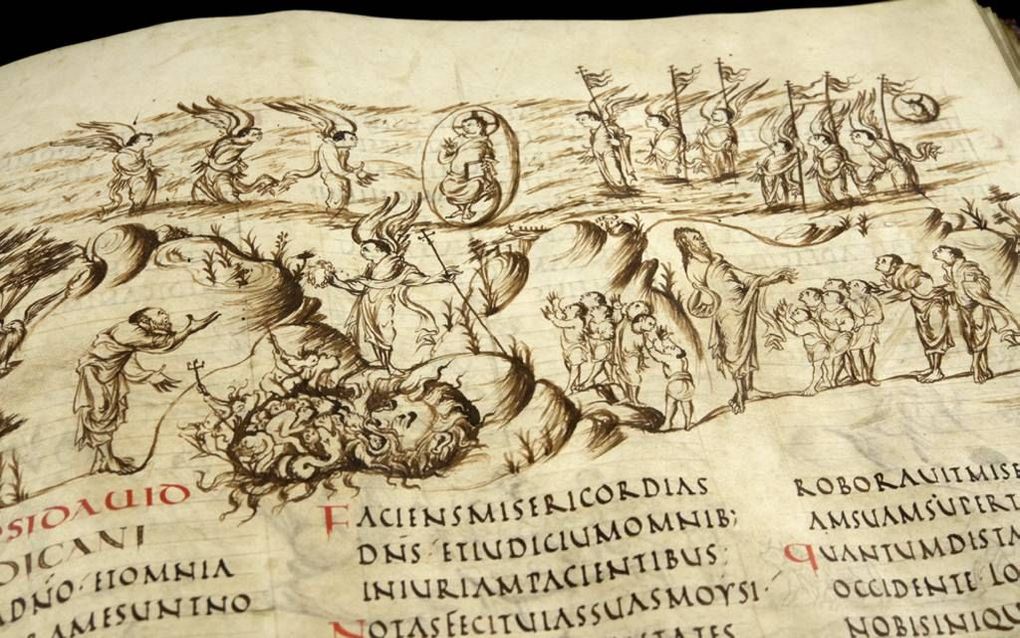 SIDAUID
DICANI
ADNO·ETOMNIA
AMESUNTNO
FACIENSMISERICORDIAS
DNS·ETIUDICIUMOMNIB;
INIURIAMPACIENTIBUS·
NOTASFECITUIASSUASMOYSI·
TATES
ROBORAUITMISE
AMSUAMSUPERT
QUANTUMDISTA
OCCIDENTE·LO
NOBISINIQU